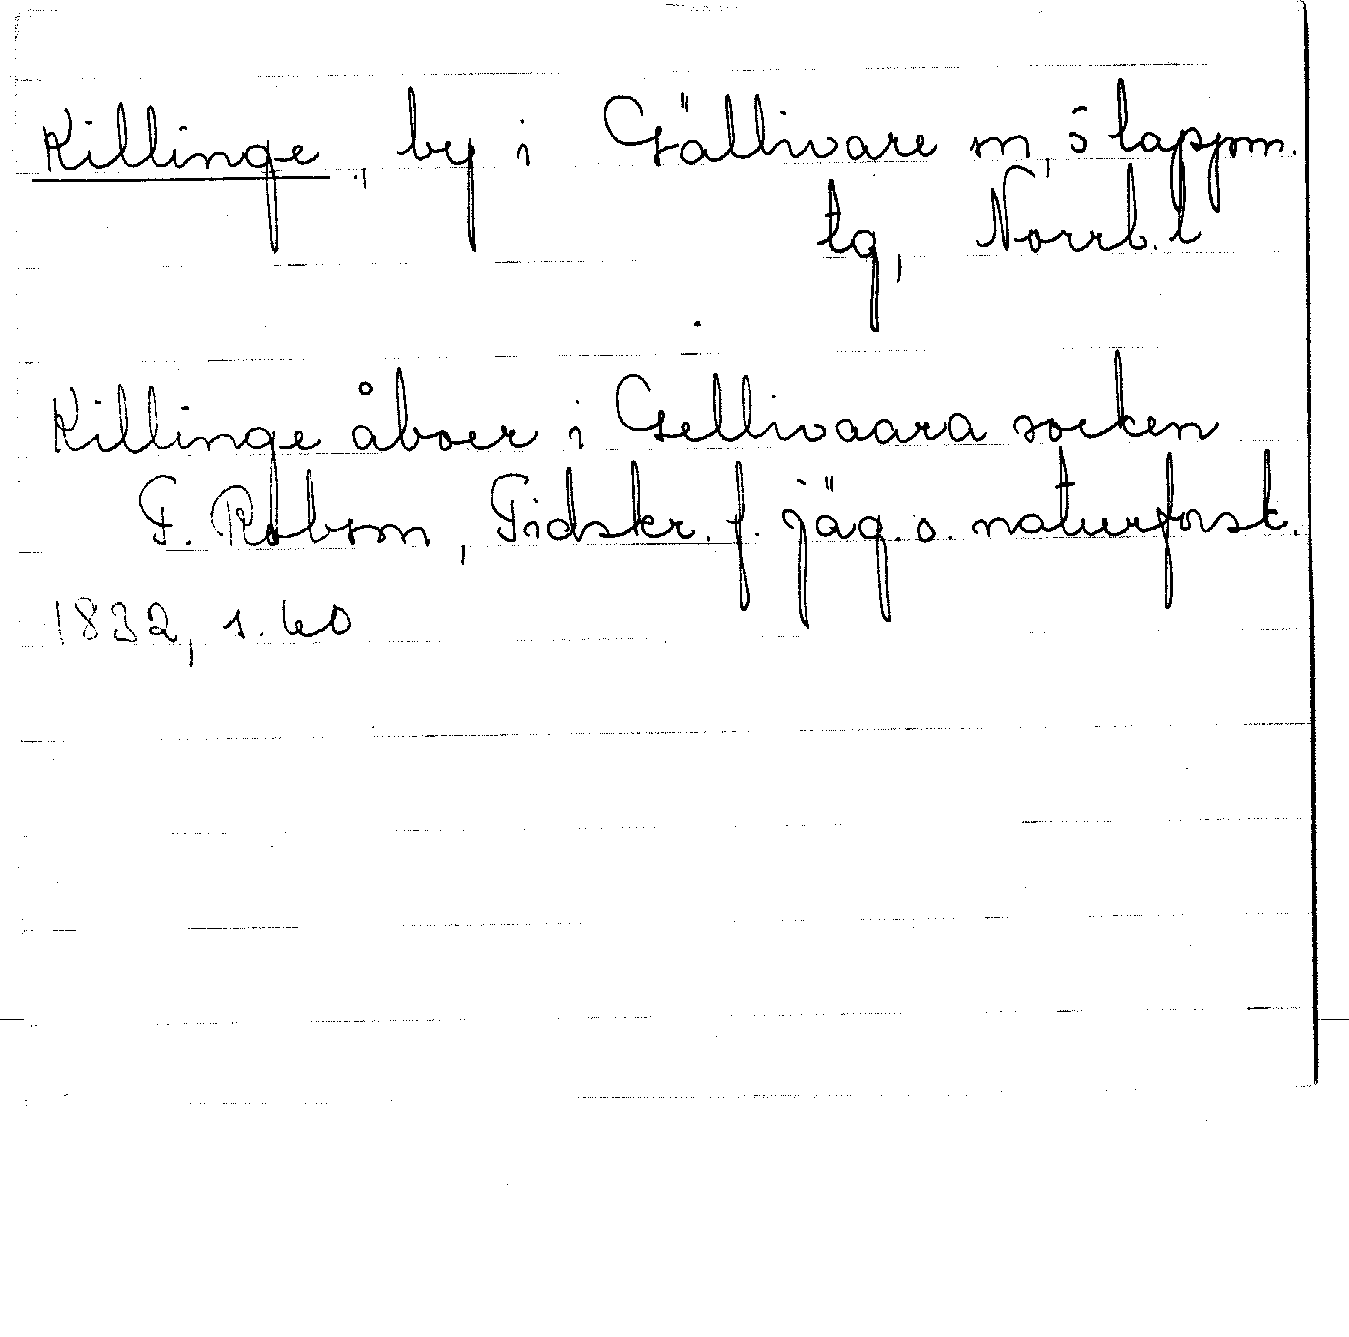 Killinge, by i Gällivare sn, s lappm.
tg, Norrb. l
Killinge åboer i Gellivaara socken
F. Robson, Tidskr. f. jäg. o. naturforsk.
1832, s. 60